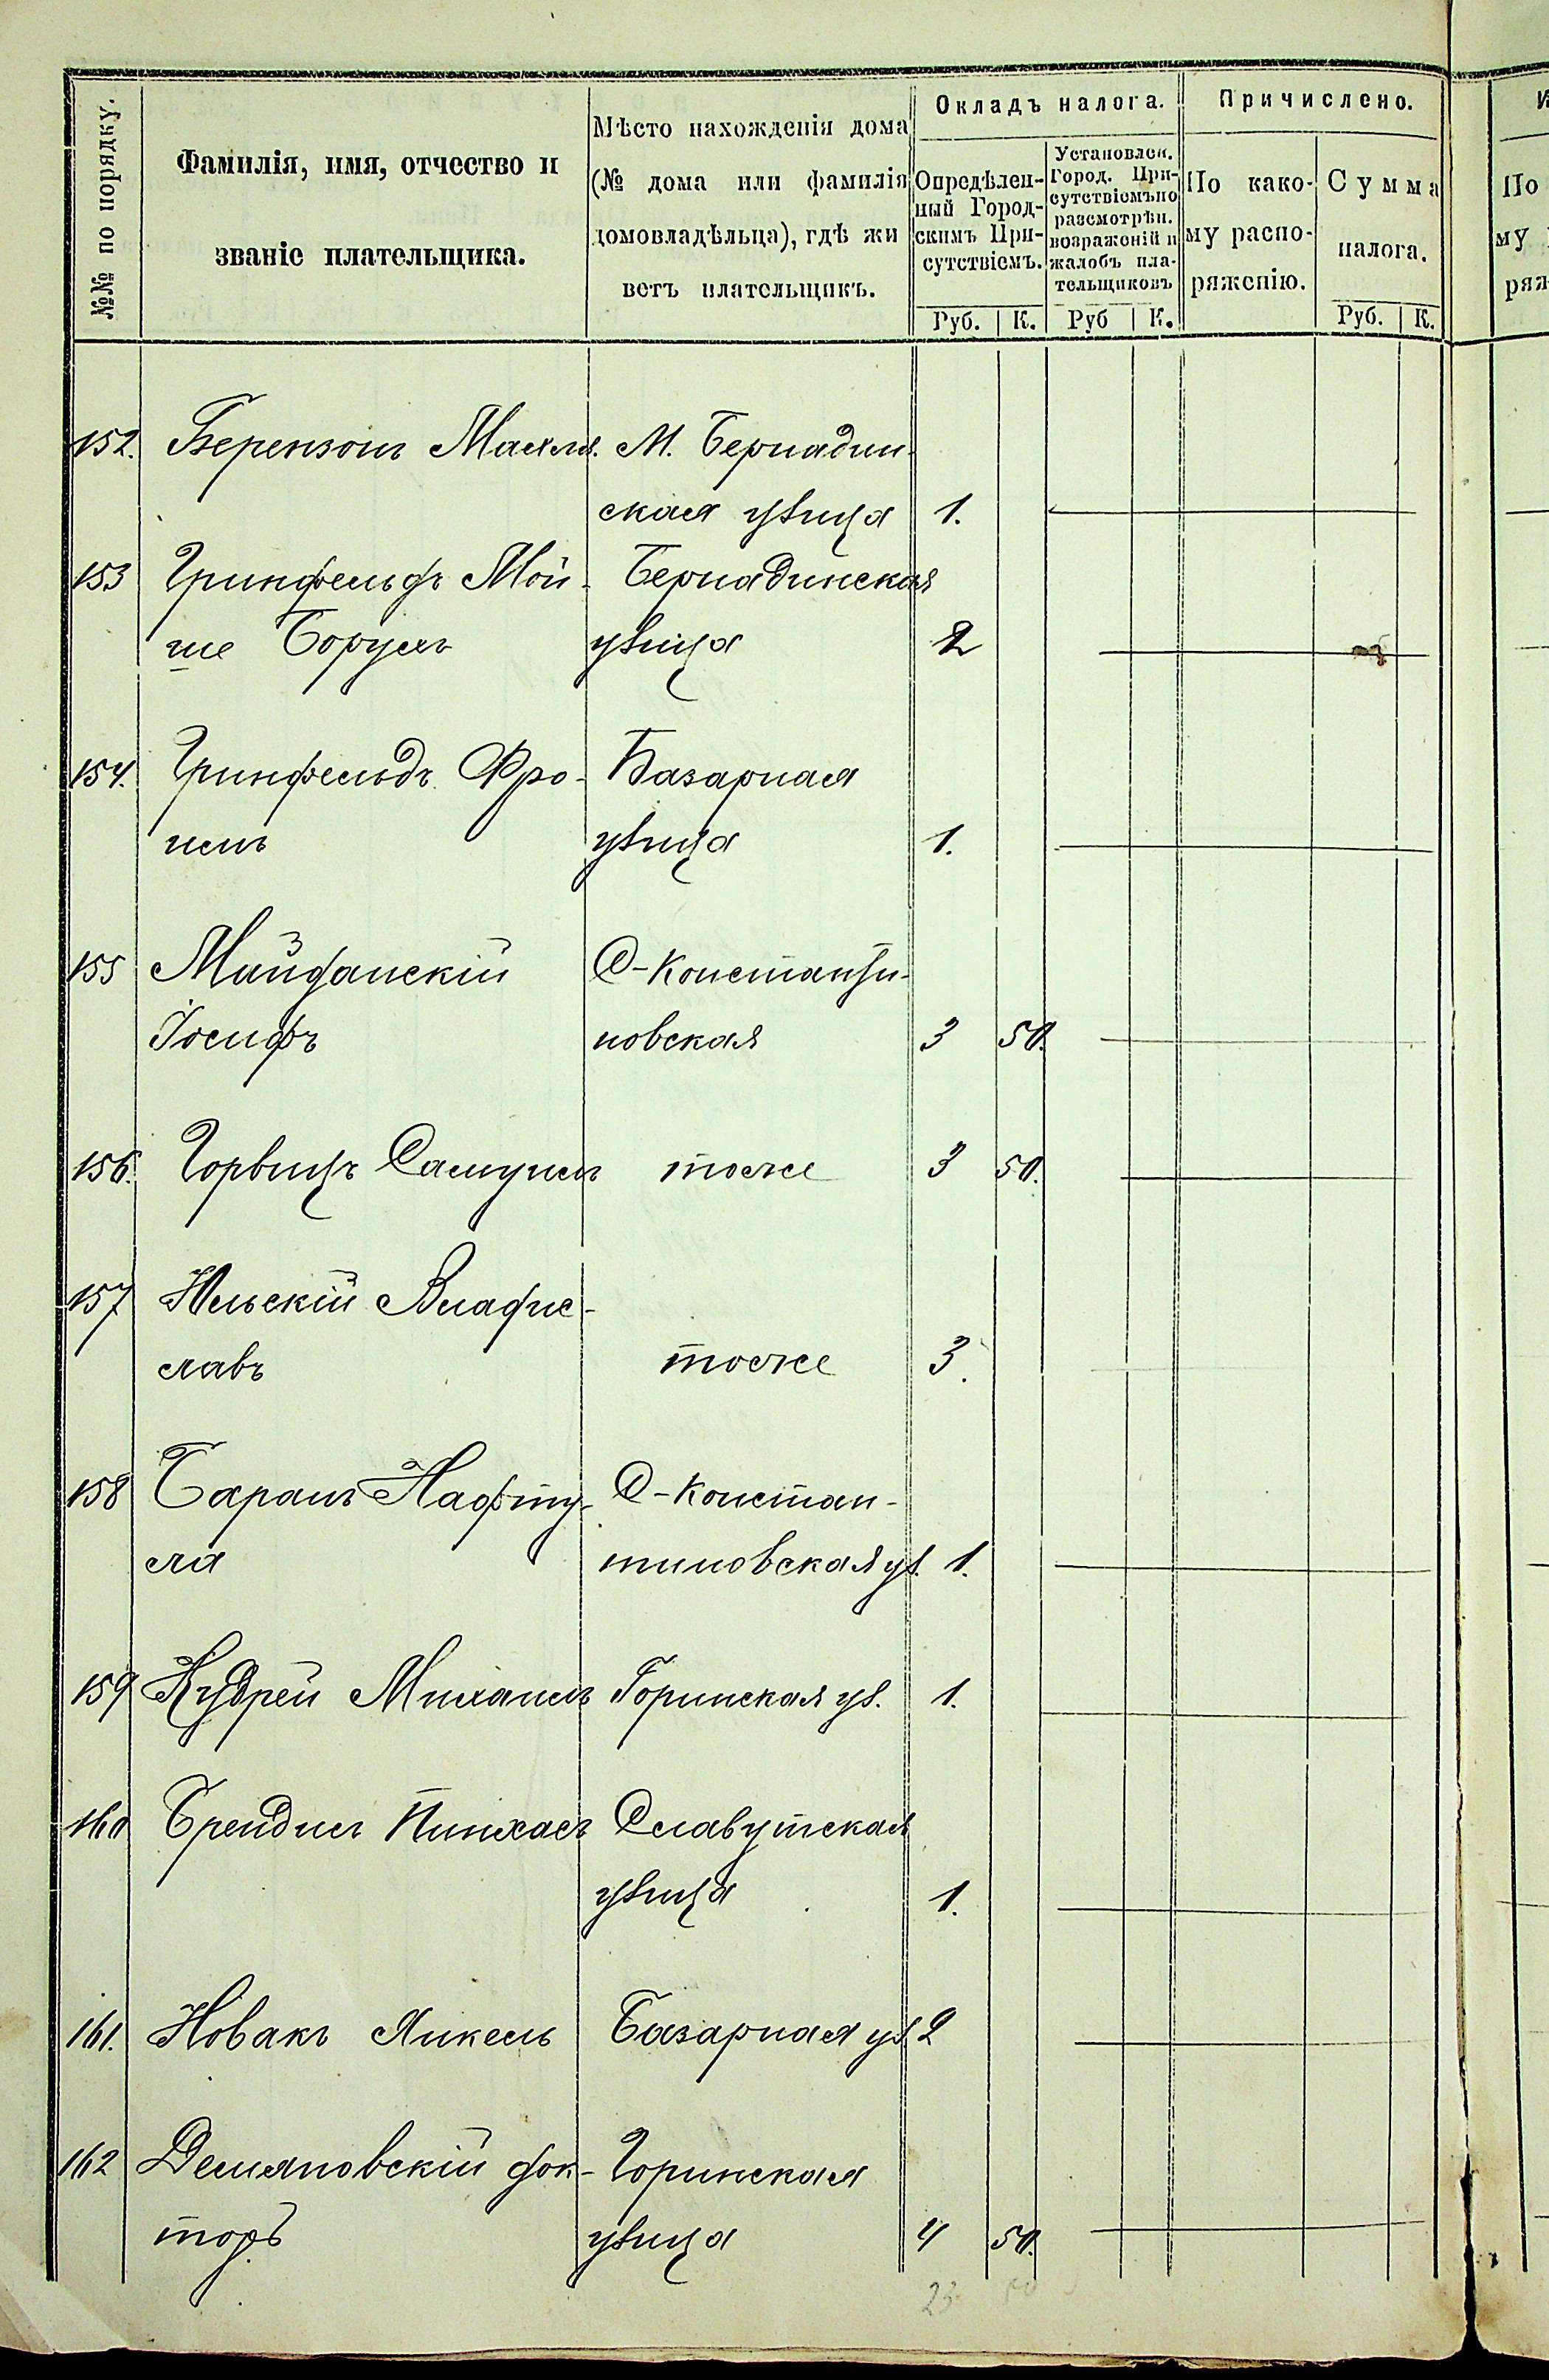 №№ по порядку.
Фамилія, имя, отчество и
званіе плательщика.
Мѣсто нахожденія дома
(№ дома или фамилія
домовладѣльца), гдѣ жи
ветъ плательщикъ.
Окладъ налога.
Опредѣлен-
ный Город-
скимъ При-
сутствіемъ.
Установлен.
Город. При-
сутствіемъ по
разсмотрѣн.
возраженій и
жалобъ пла-
тельщиковъ
Причислено.
По како-
му распо-
ряженію.
Сумма
налога.
Руб. К. Руб К. Руб. К.
По
му
ряж
152. Берензонъ Махля. М. Бернадин-
ская улица 1.
153 Гринфельдъ Мой- Бернадинская
ше Борухъ улица 2
154. Гринфельдъ Фро- Базарная
имъ улица 1.
155 Майданскій С-Константи-
Іосифъ новская 3 50.
156. Горвицъ Самуилъ тоже 3 50.
157 Ильскій Владис-
лавъ тоже 3.
158 Баранъ Нафту- С-Констан-
ла тиновская ул. 1.
159 Кудрей Михаилъ Горинская ул. 1.
160 Брейдисъ Пинхасъ Славутская
улица 1.
161. Новакъ Янкель Базарная ул. 2
162 Демяновскій док- Горинская
торъ улица 4 50.
23 50